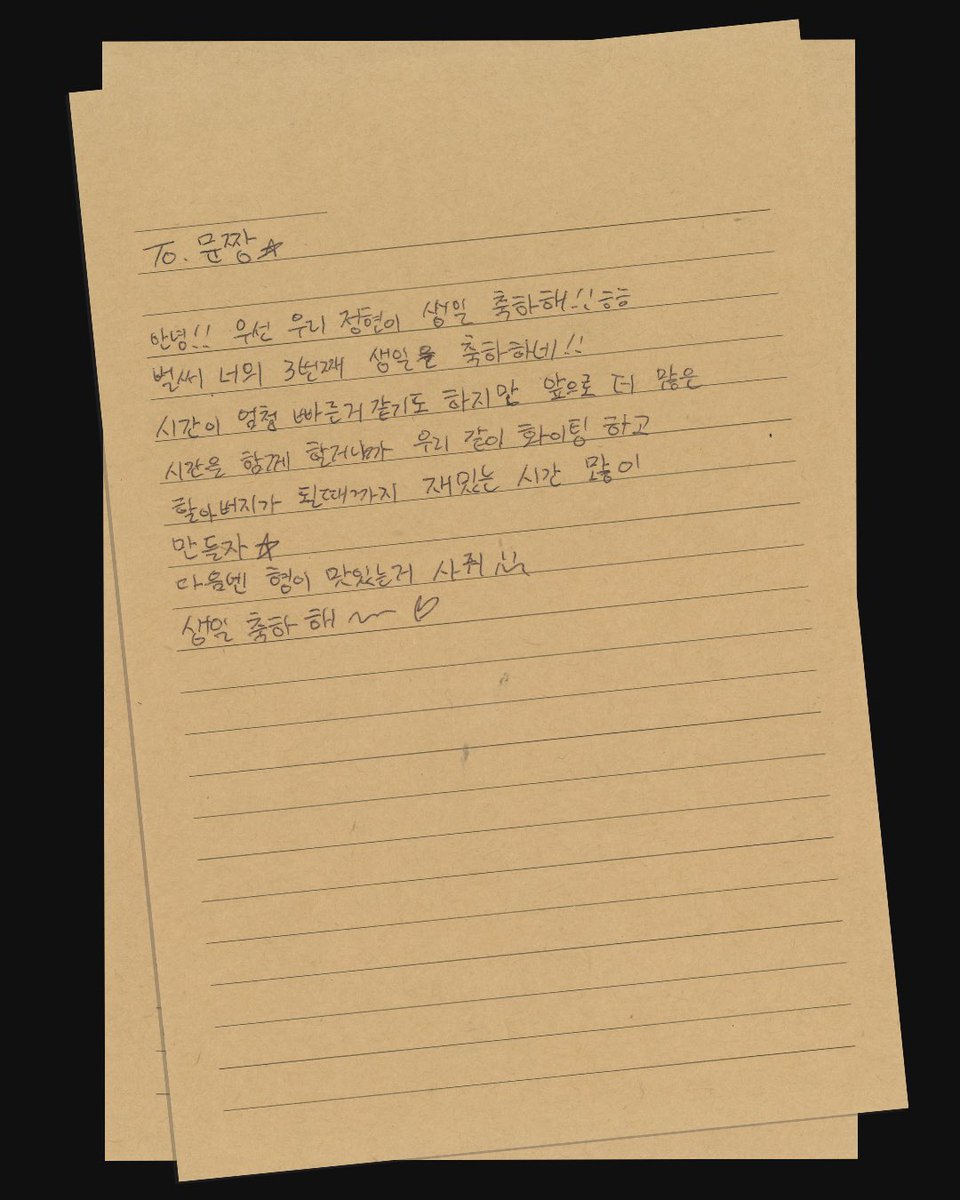 To. 문짱☆
안녕!! 우선 우리 정현이 생일 축하해!! ㅎㅎ
벌써 너의 3번째 생일을 축하하네!!
시간이 엄청 빠른거같기도 하지만 앞으로 더 많은
시간을 함께 할거니까 우리 같이 화이팅 하고
할아버지가 될때까지 재밌는 시간 많이
만들자☆
다음엔 형이 맛있는거 사줘
생일 축하 해 ~ ♡